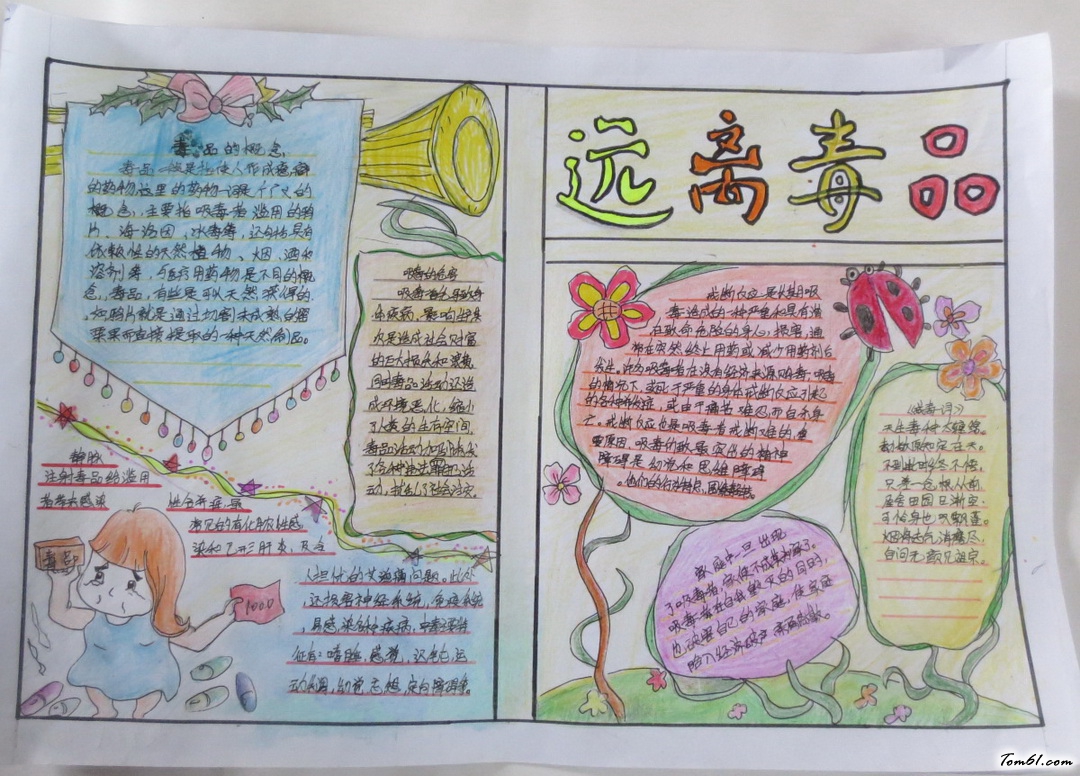 远离毒品
毒品的概念
毒品一般是指使人形成瘾癖
的药物这里的药物一词是个广义的
概念,主要指吸毒者滥用的鸦
片、海洛因、冰毒等,还包括具有
依赖性的天然植物、烟、酒和
溶剂等,与医疗用药物是不同的概
念,毒品,有些是可以天然获得的
如鸦片就是通过切割未成熟的罂
粟果而直接提取的一种天然制品。
吸毒的危害
疾病,影响
次是造成社会财富
的巨大损失和浪费
同时毒品活动还造
成环境恶化,缩小
了人类的生存空间
毒品活动加剧诱发
了各种违法犯罪活
动,扰乱了社会治安
静脉
注射毒品给滥用
者带来感染
性合并症,最
常见的有化脓性感
染和乙形肝炎,及令
人担忧的艾滋病问题。此外
,还损害神经系统,免疫系统
,易感染各种疾病,中毒主要特
征有:嗜睡,感觉迟钝,运
动失调,幻觉,妄想,定向障碍等。
毒品
1000
戒断反应:是长期吸
毒造成的一种严重和具有潜
在致命危险的身心损害,通
常在突然终止用药或减少用药剂量
发生,许多吸毒者在没有经济来源购毒、吸毒
的情况下,或死于严重的身体戒断反应引起
的各种并发症,或由于痛苦难忍而自杀身
亡。戒断反应也是吸毒者戒断难的重
要原因。吸毒所致最突出的精神
障碍是幻觉和思维障碍
。他们的行为特点,围绕毒品
家庭中一旦出现
了吸毒者,家便不成其为家了。
吸毒者在自我毁灭的同时,
也破害自己的家庭,使家庭
陷入经济破产
《戒毒词》
不到此时终不悟,
屋舍田园日渐空
Tom61.com